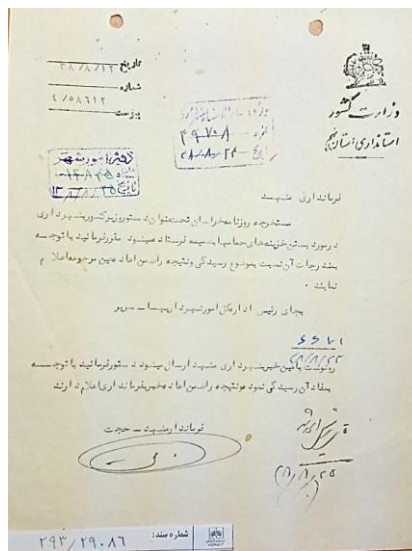 وزارت کشور
استانداری استان نهم
تاریخ ۲۸/۸/۱۲
شماره ۵۸۶۱۲/
پیوست
شماره ۳۹۷۰۸
دفتر امور شهر
فرمانداری مشهد
مستخرجه روزنامه خراسان تحت عنوان دستور وزیر کشور بشهرداری
درمورد بستن خزینه های حمامها بضمیمه فرستاده میشود مقرر فرمائید با توجه
بمندرجات آن نسبت بموضوع رسیدگی و نتیجه را ضمن اعاده عین مرجوعه اعلام
نمایند .
بجای رئیس اداره کل امور شهرداریها
رونوشت با عین خبر بشهرداری مشهد ارسال میشود دستور فرمائید با توجه
بمفاد آن رسیدگی نموده و نتیجه را ضمن اعاده خبر بفرمانداری اعلام دارند
فرماندار مشهد - حجت
شماره سند:
۲۹۳/۲۹۰۸۶